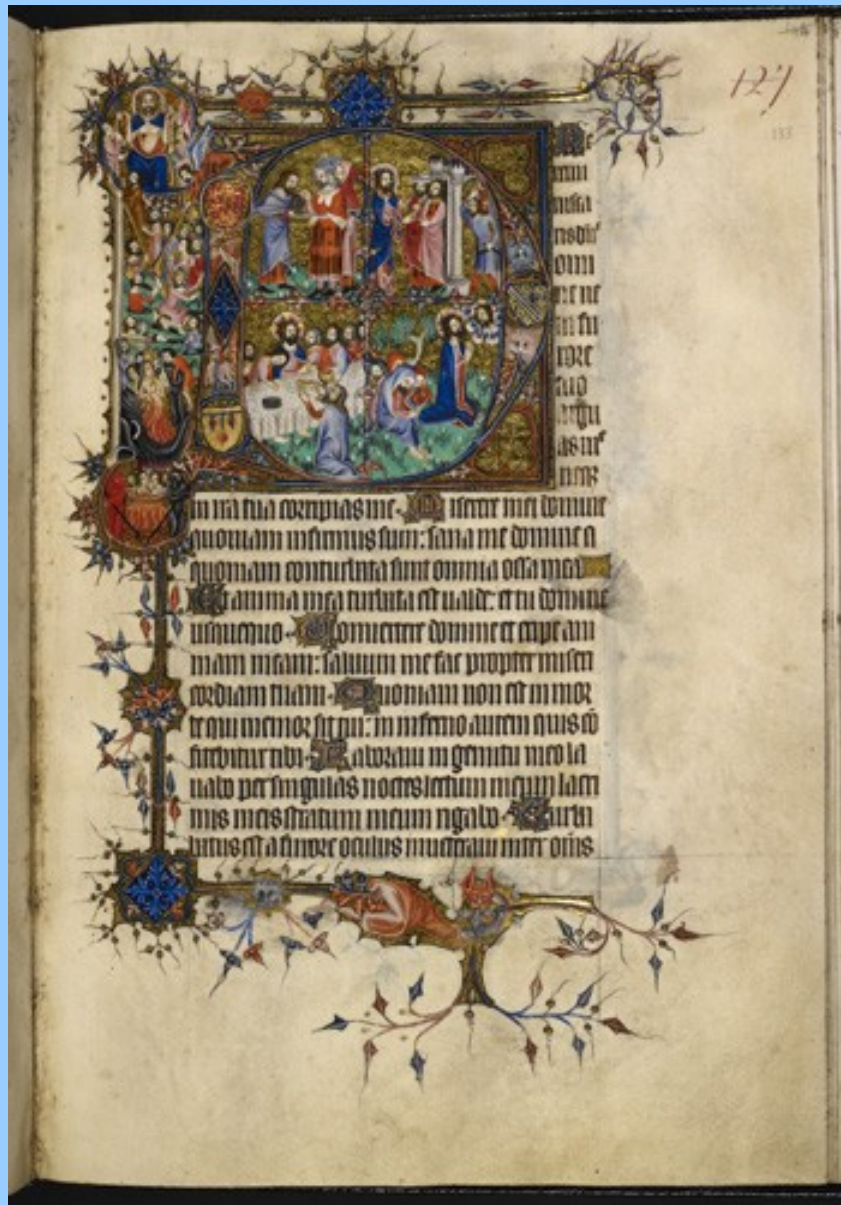 127
133
Ne
remi
nisca
ris dñe
omi
ne ne
in fu
rore
tuo
argu
as me
neqꝫ
in ira tua corripias me. Miserere mei domine
quoniam infirmus sum: sana me domine
quoniam conturbata sunt omnia ossa mea
Et anima mea turbata est ualde: et tu domine
usquequo. Conuertere domine et eripe ani
mam meam: saluum me fac propter miseri
cordiam tuam. Quoniam non est in mor
te qui memor sit tui: in inferno autem quis cō
fitebitur tibi. Laboraui in gemitu meo la
uabo per singulas noctes lectum meum lacri
mis meis stratum meum rigabo. Turba
tus est a furore oculus meus inter om̄s